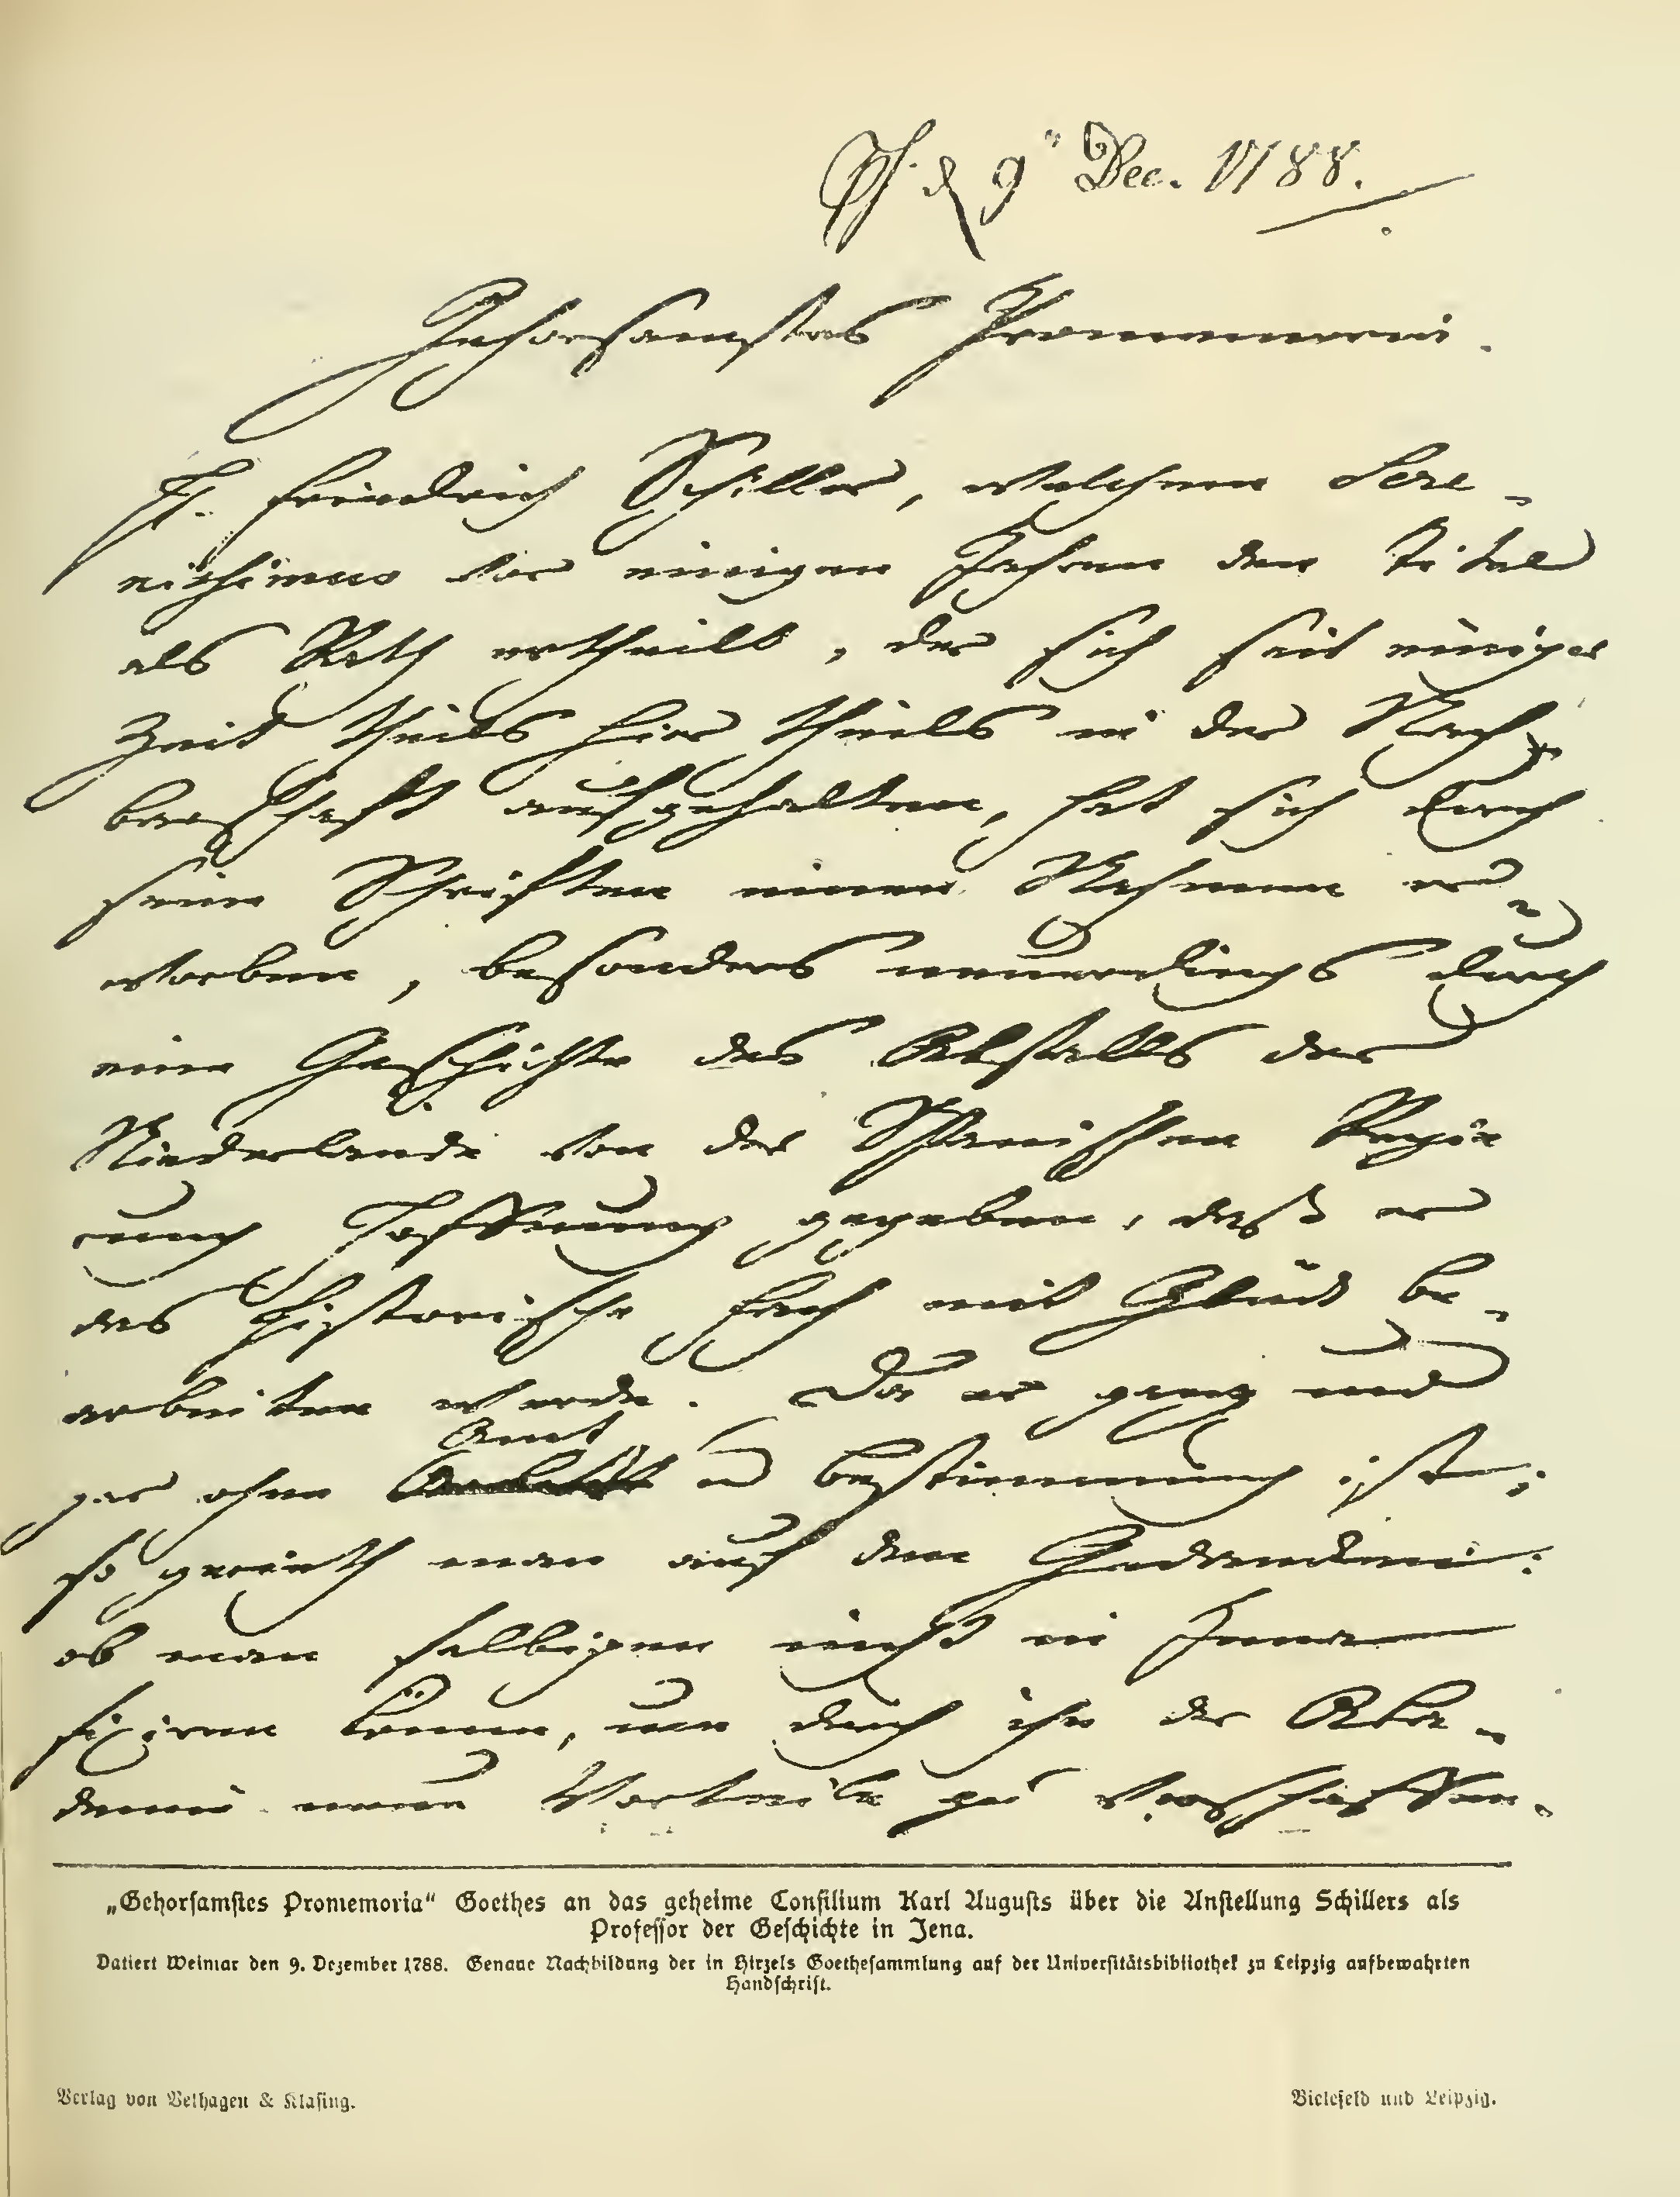 d 9" Dec. 1788.
Gehorsamstes Promemoria.
H. Friedrich Schiller, welchem Sere-
nissimus vor einigen Jahren den Titel
als Rath ertheilt, der sich seit einiger
Zeit theils hier theils in der Nach-
barschafft aufgehalten, hat sich durch
seine Schrifften einen Nahmen er-
worben, besonders neuerdings durch
eine Geschichte des Abfalls der
Niederlande von der Spanischen Regie
rung Hoffnung gegeben, daß er
das historische Fach mit Glück be-
arbeiten werde. Da er ganz und
Amt
gar ohne u Bestimmung ist;
so gerieth man auf den Gedancken:
ob man selbigen nicht in Jena
fixiren könne, um durch ihn der Aka-
demie neue Vortheile zu verschaffen.
„Gehorſamſtes Promemoria“ Goethes an das geheime Conſilium Karl Auguſts über die Anſtellung Schillers als
Profeſſor der Geſchichte in Jena.
Datiert Weimar den 9. Dezember 1788. Genaue Nachbildung der in Hirzels Goetheſammlung auf der Univerſitätsbibliothek zu Leipzig aufbewahrten
Handſchrift.
Verlag von Velhagen & Klaſing.
Bielefeld und Leipzig.